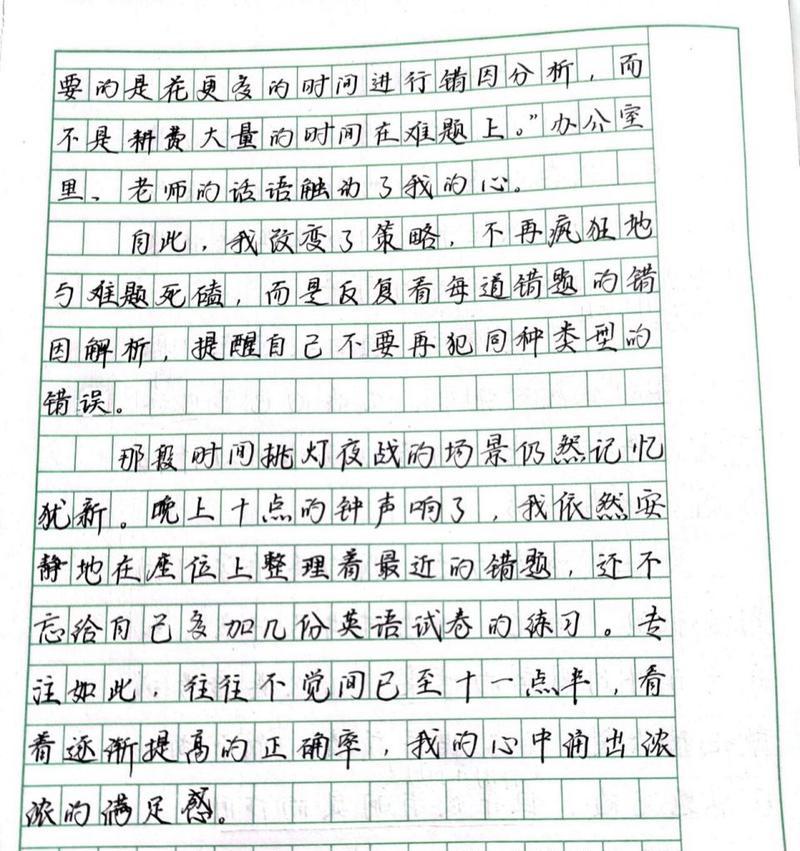 要的是花更多的时间进行错因分析，而
不是耕费大量的时间在难题上。”办公室
里、老师的话语触动了我的心。
自此，我改变了策略，不再疯狂地
与难题死磕，而是反复看每道错题的错
因解析，提醒自己不要再犯同种类型的
错误。
那段时间挑灯夜战的场景仍然记忆
犹新。晚上十点的钟声响了，我依然安
静地在座位上整理着最近的错题，还不
忘给自己多加几份英语试卷的练习。专
注如此，往往不觉间已至十一点半，看
着逐渐提高的正确率，我的心中涌出浓
浓的满足感。